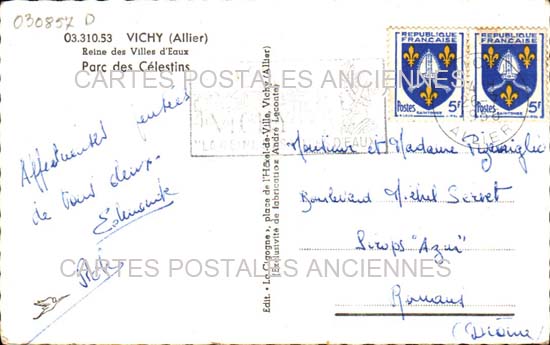 030857 D
03.310.53 VICHY (Allier)
Reine des Villes d'Eaux
Parc des Célestins
CARTES POSTALES ANCIENNES
REPUBLIQUE FRANÇAISE
Postes 5F
SAINTONGE
REPUBLIQUE FRANÇAISE
Postes 5F
SAINTONGE
VICHY
ALLIER
Affectueuses pensées
de tous deux.
Edmonde
Edit. "La Cigogne", place de l'Hôtel-de-Ville, Vichy (Allier)
(Exclusivité de fabrication André Leconte)
Monsieur et Madame
Boulevard Michel Servet
Sirops "Azur"
Romans
(Drôme)
CARTES POSTALES ANCIENNES